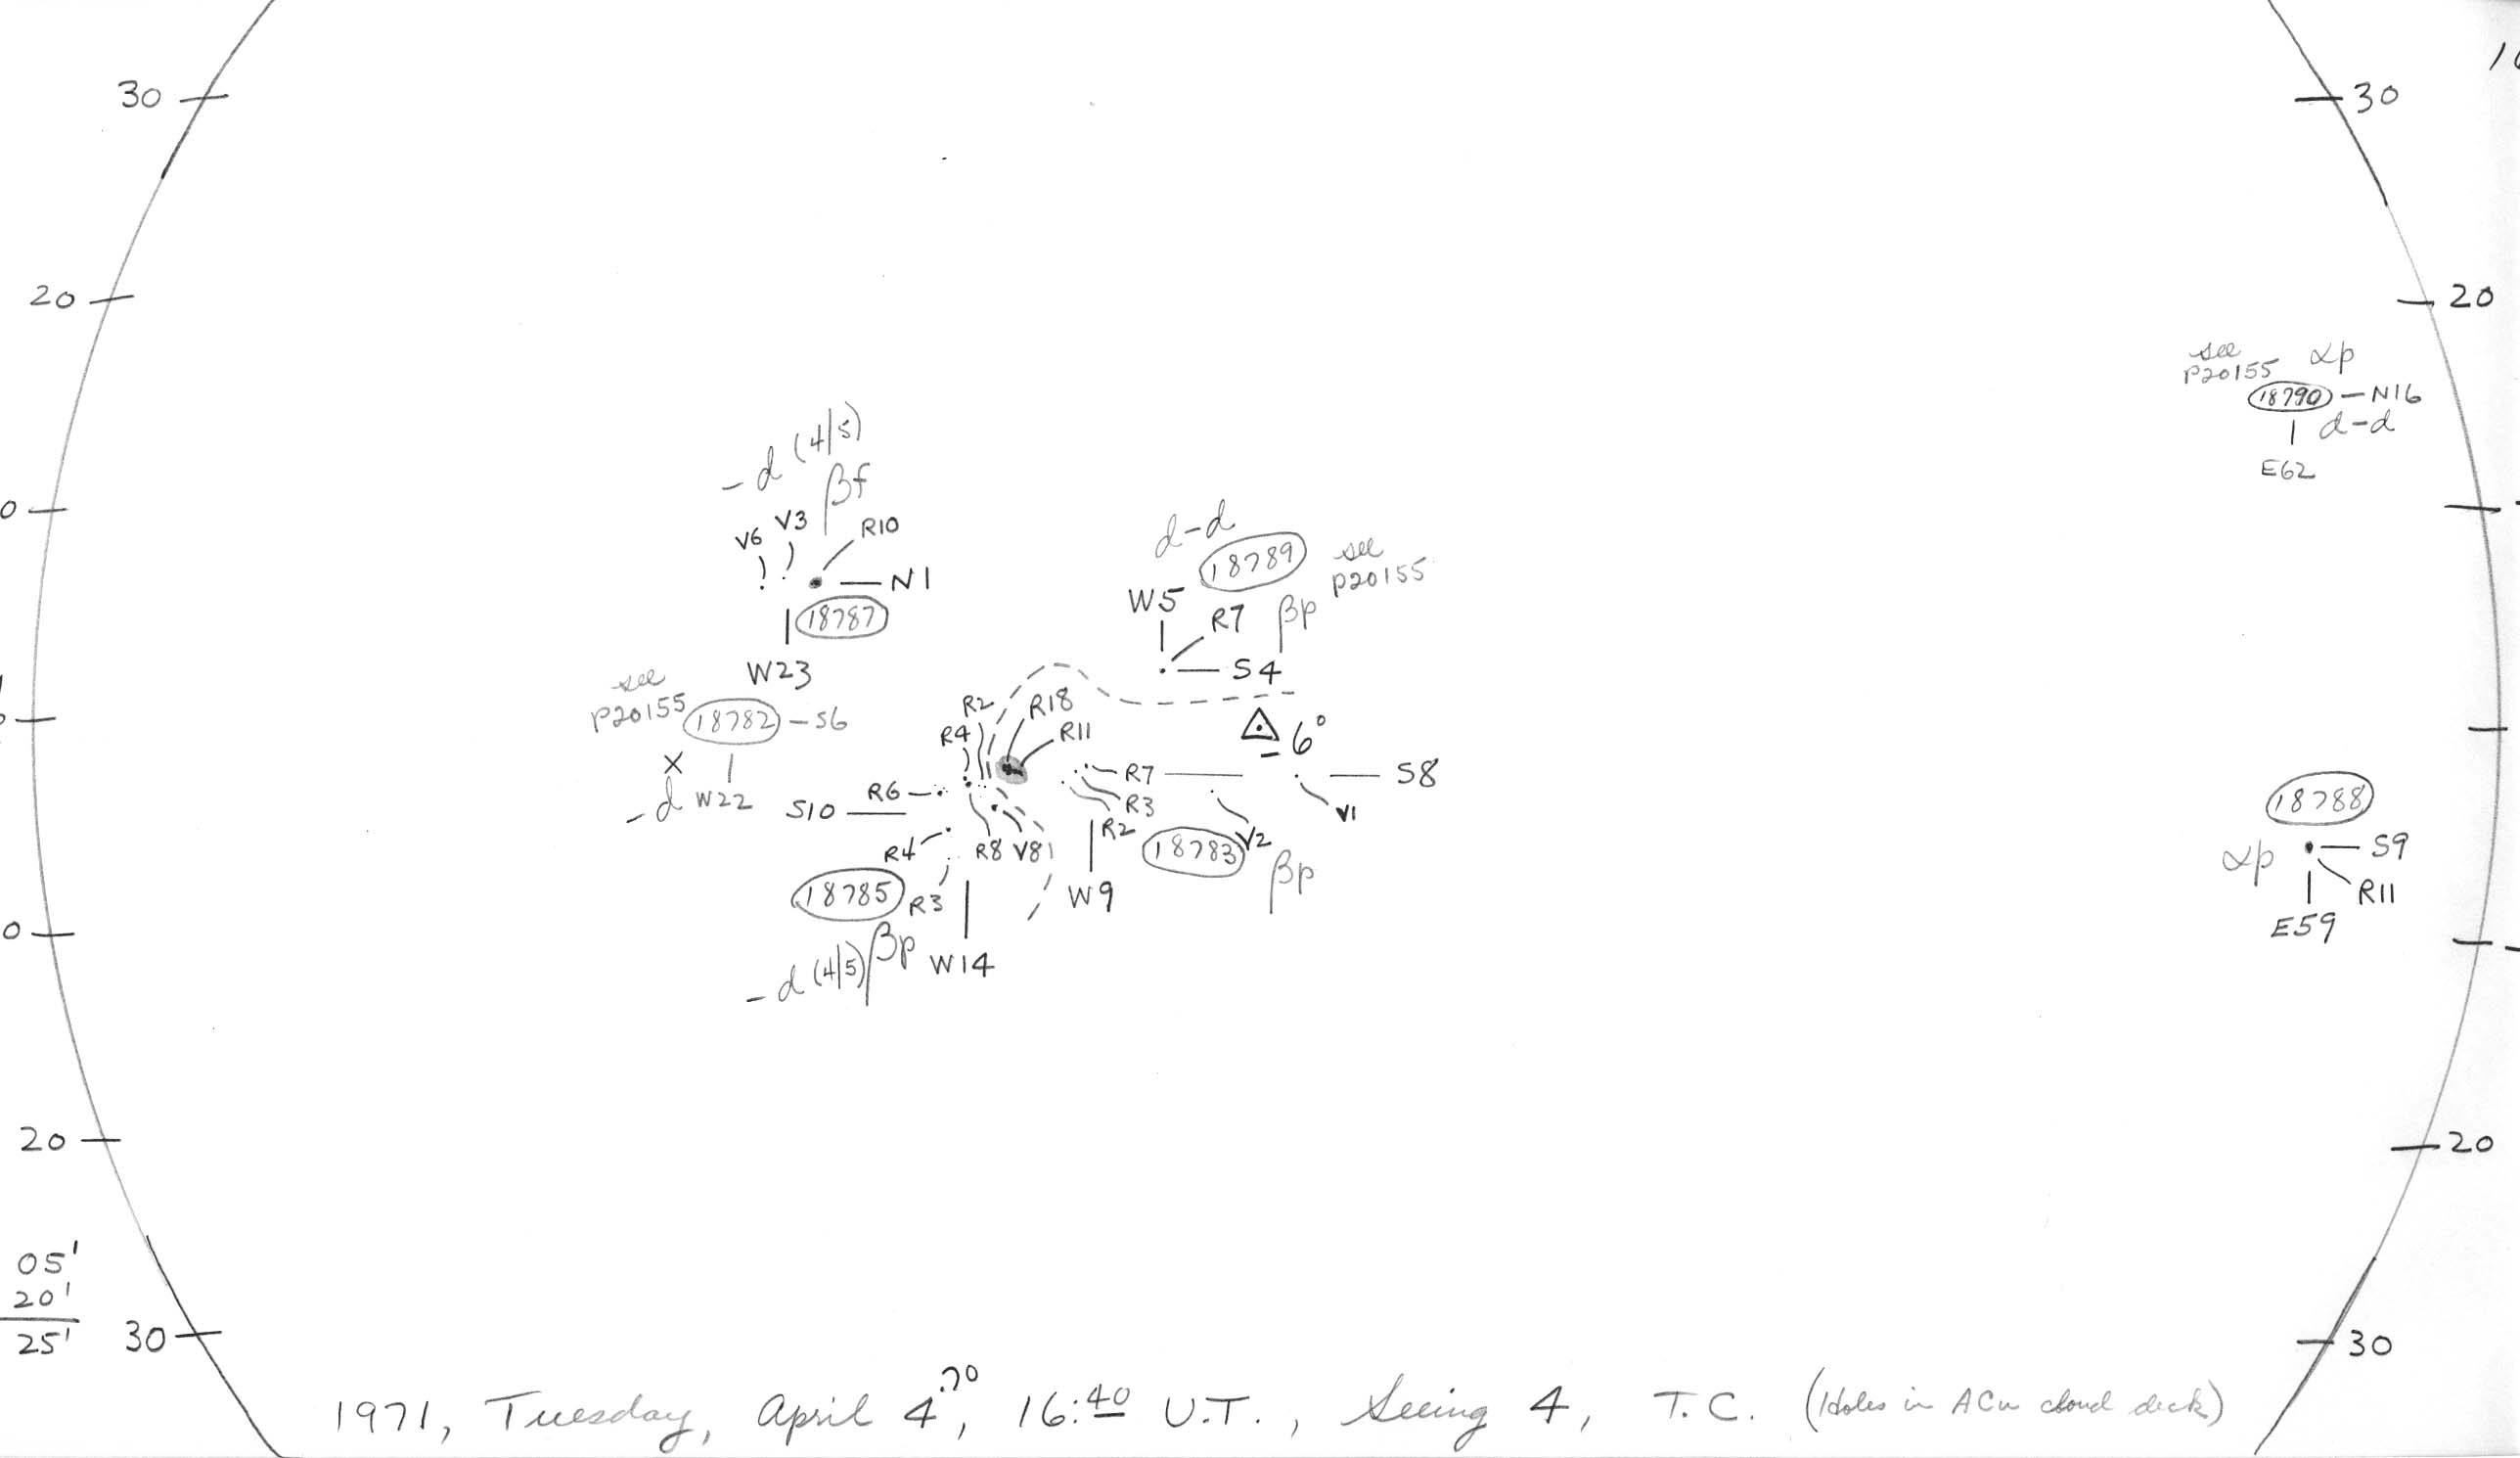 30
30
20
20
see αp
p20155
18790 – N16
d-d
E62
-d (4/5)
βf
V6 V3 R10
N1
18787
W23
d-d
18789 see
p20155
W5 R7 βp
S4
see
p20155 18782 – S6
X
-d W22
R2 R18
R4 R11
6°
R7
S8
R6
S10
R3
V1
R2
R4 R8 V8
18783 V2
βp
W9
18785 R3
βp
-d (4/5) W14
18788
αp S9
R11
E59
0
0
20
20
05'
20'
25'
30
30
1971, Tuesday, April 4.70, 16:40 U.T., Seeing 4, T.C. (Holes in ACu cloud deck)